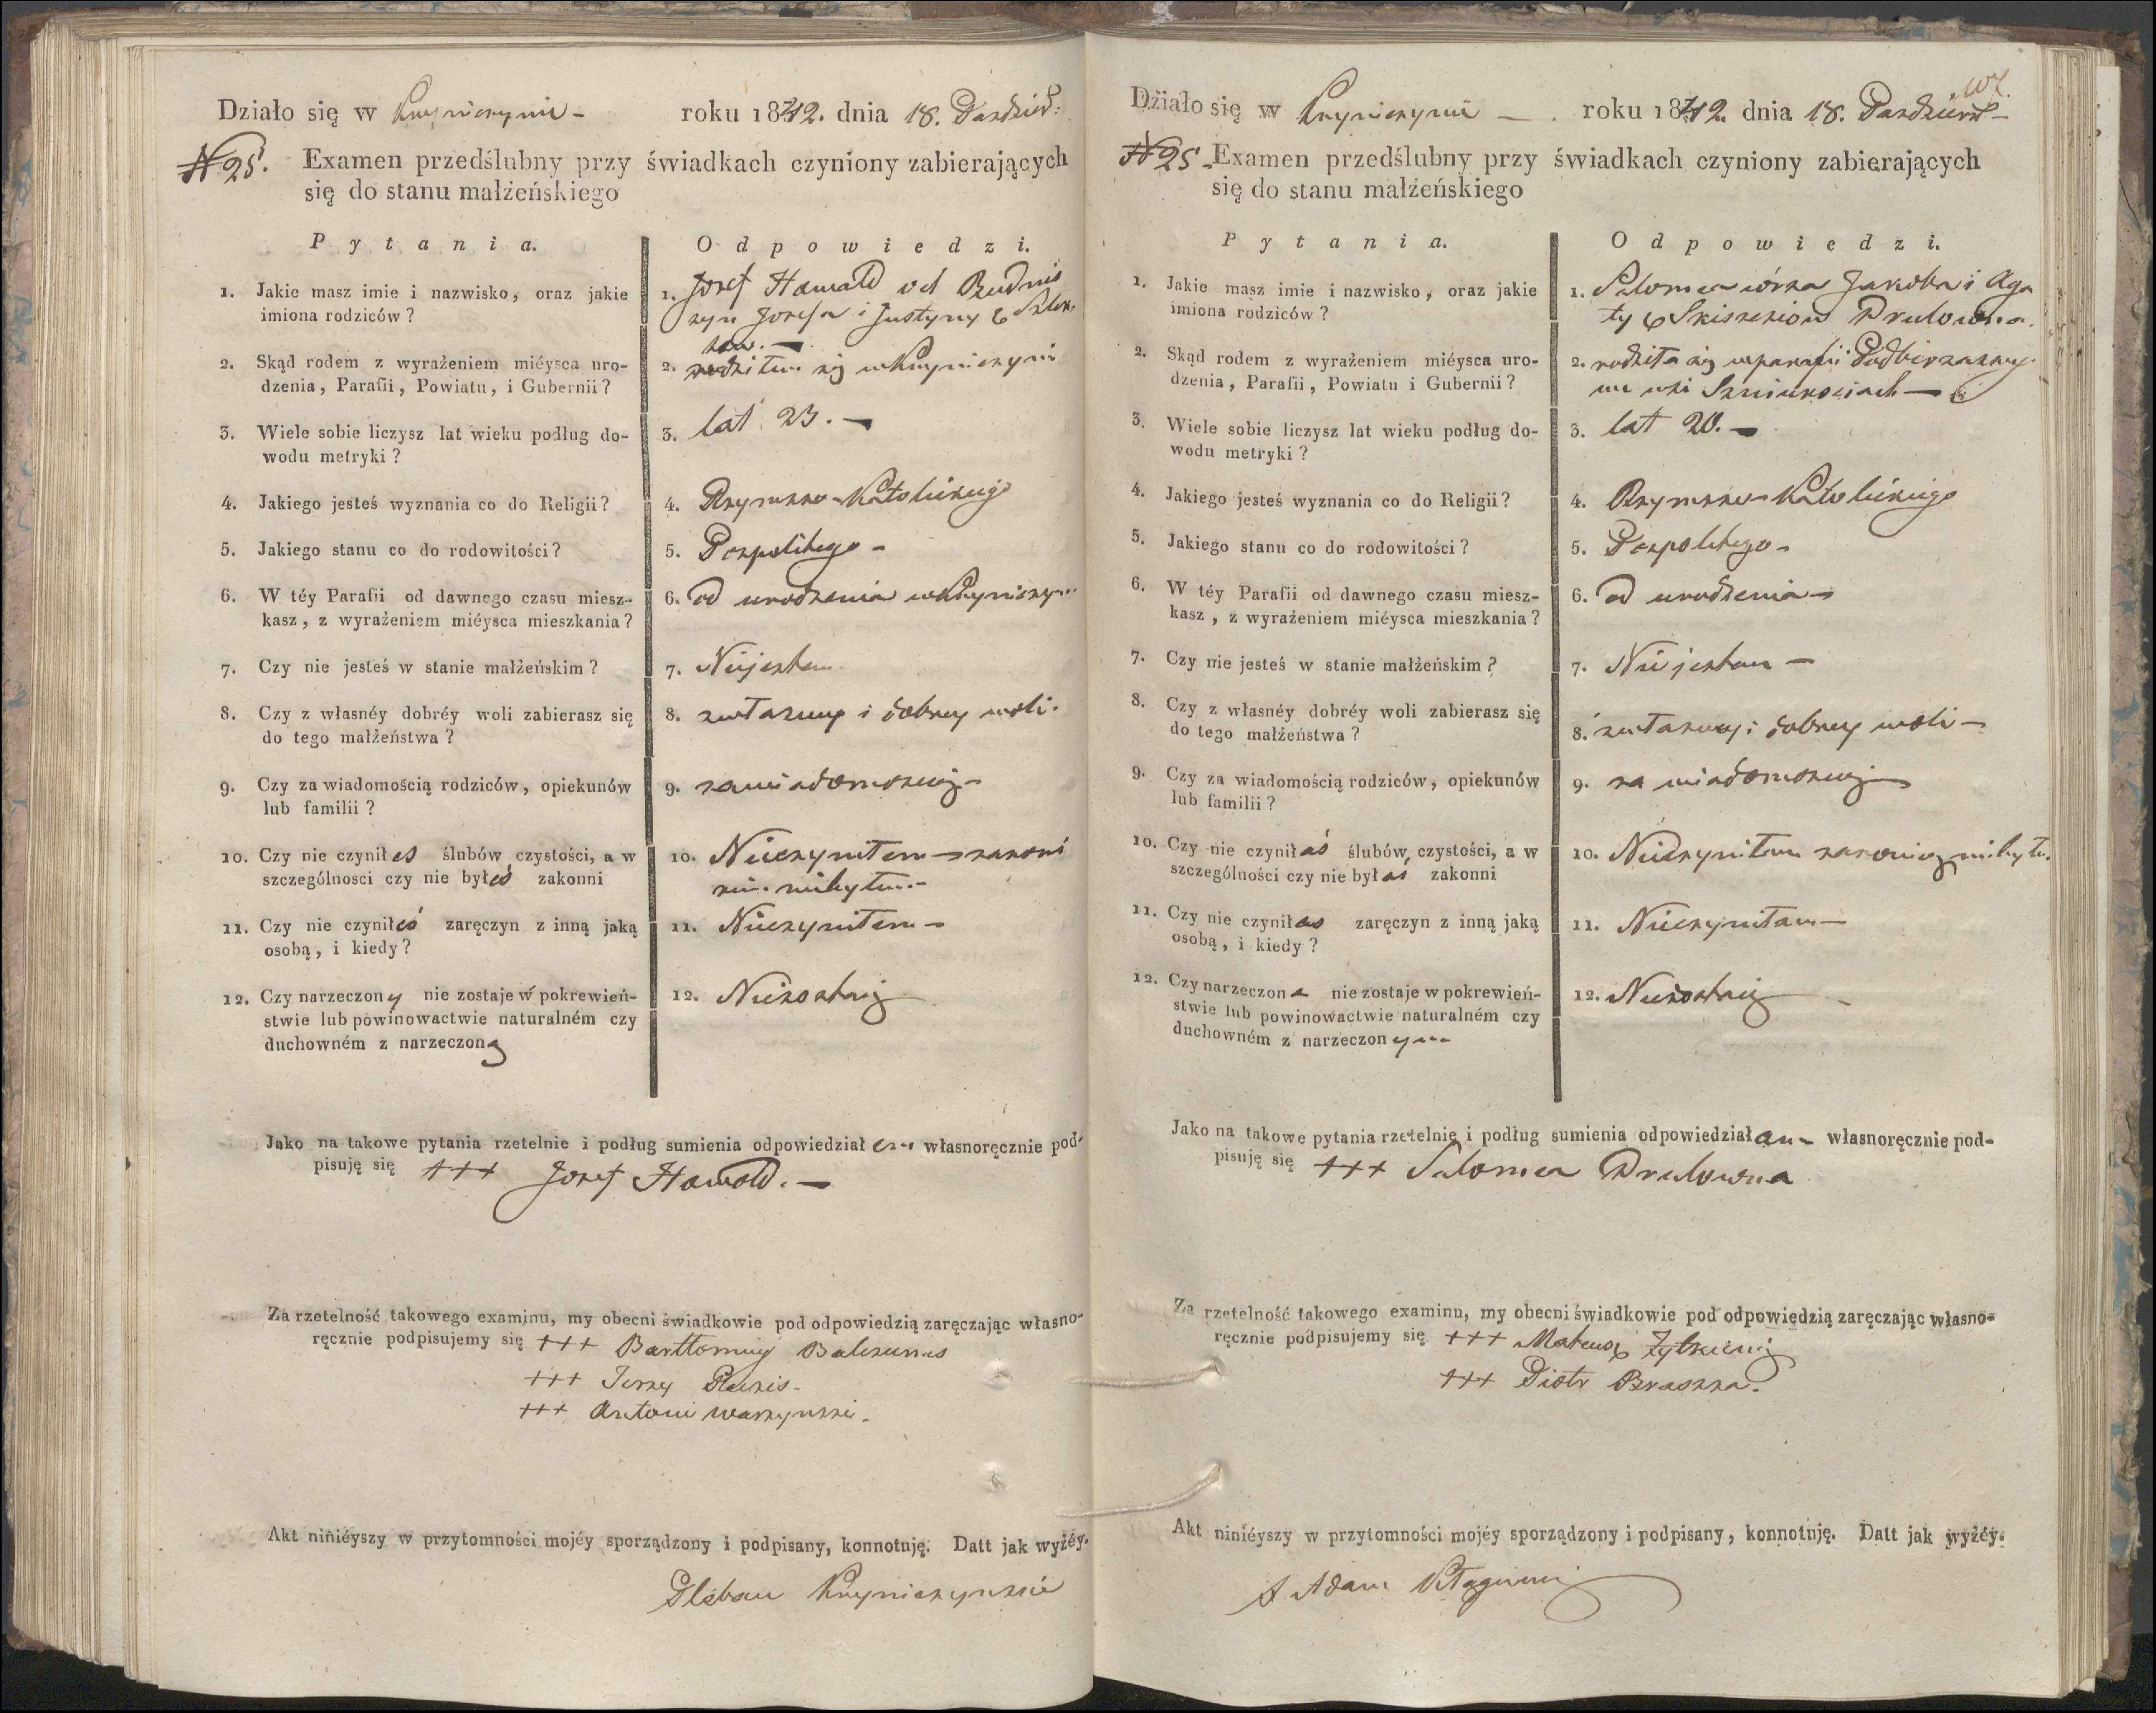 Działo się w Krynicznymie – roku 1842. dnia 18. Pazdzier:
N 25. Examen przedślubny przy świadkach czyniony zabierających
się do stanu małżeńskiego
Pytania. Odpowiedzi.
1. Jakie masz imie i nazwisko, oraz jakie
imiona rodziców?
1. Jozef Hawald vel Rudnis
syn Jozefa i Justyny
2. Skąd rodem z wyrażeniem miéysca uro-
dzenia, Parafii, Powiatu, i Gubernii?
2. rodziłem się
3. Wiele sobie liczysz lat wieku podług do-
wodu metryki?
3. lat 23. –
4. Jakiego jesteś wyznania co do Religii?
4. Rzymsko-Katolickiego
5. Jakiego stanu co do rodowitości?
5. Pospolitego –
6. W téy Parafii od dawnego czasu miesz-
kasz, z wyrażeniem miéysca mieszkania?
6. od urodzenia
7. Czy nie jesteś w stanie małżeńskim?
7. Niejestem
8. Czy z własnéy dobréy woli zabierasz się
do tego małżeństwa?
8. zwłasney i dobrey woli.
9. Czy za wiadomością rodziców, opiekunów
lub familii?
9. zawiadomoscią –
10. Czy nie czyniłeś ślubów czystości, a w
szczególnosci czy nie byłeś zakonni
10. Nieczyniłem – zakoni
kiem niebyłem –
11. Czy nie czyniłeś zaręczyn z inną jaką
osobą, i kiedy?
11. Nieczyniłem –
12. Czy narzeczony nie zostaje w pokrewień-
stwie lub powinowactwie naturalném czy
duchowném z narzeczoną
12. Niezostaię
Jako na takowe pytania rzetelnie i podług sumienia odpowiedziałem własnoręcznie pod-
pisuję się +++ Jozef Hawald. –
Za rzetelność takowego examinu, my obecni świadkowie pod odpowiedzią zaręczając własno-
ręcznie podpisujemy się +++ Bartłomiey Balczunas
+++ Jerzy
+++ Antoni Warzynski.
Akt niniéyszy w przytomności mojéy sporządzony i podpisany, konnotuję. Datt jak wyżéy.
Pleban
Działo się w Krynicznymie – roku 1842. dnia 18. Pazdziern –
N 25 – Examen przedślubny przy świadkach czyniony zabierających
się do stanu małżeńskiego
Pytania. Odpowiedzi.
1. Jakie masz imie i nazwisko, oraz jakie
imiona rodziców?
1. Salomea córka Jakoba i Aga
ty z Drulowna.
2. Skąd rodem z wyrażeniem miéysca uro-
dzenia, Parafii, Powiatu i Gubernii?
2. rodziła się wparafii Podbirzanskey
we wsi
3. Wiele sobie liczysz lat wieku podług do-
wodu metryki?
3. lat 20. –
4. Jakiego jesteś wyznania co do Religii?
4. Rzymsko-Katolickiego
5. Jakiego stanu co do rodowitości?
5. Pospolitego –
6. W téy Parafii od dawnego czasu miesz-
kasz, z wyrażeniem miéysca mieszkania?
6. od urodzenia –
7. Czy nie jesteś w stanie małżeńskim?
7. Niejestem –
8. Czy z własnéy dobréy woli zabierasz się
do tego małżeństwa?
8. zwłasney i dobrey woli –
9. Czy za wiadomością rodziców, opiekunów
lub familii?
9. za wiadomoscią
10. Czy nie czyniłaś ślubów czystości, a w
szczególności czy nie byłaś zakonni
10. Nieczyniłam zakonicą niebyłam
11. Czy nie czyniłas zaręczyn z inną jaką
osobą, i kiedy?
11. Nieczyniłam –
12. Czy narzeczona nie zostaje w pokrewień-
stwie lub powinowactwie naturalném czy
duchowném z narzeczonym
12. Niezostaię –
Jako na takowe pytania rzetelnie i podług sumienia odpowiedziałam – własnoręcznie pod-
pisuję się +++ Salomea Drulowna
Za rzetelność takowego examinu, my obecni świadkowie pod odpowiedzią zaręczając własno-
ręcznie podpisujemy się +++ Mateusz
+++ Piotr Braszka.
Akt niniéyszy w przytomności mojéy sporządzony i podpisany, konnotuję. Datt jak wyżéy.
X Adam